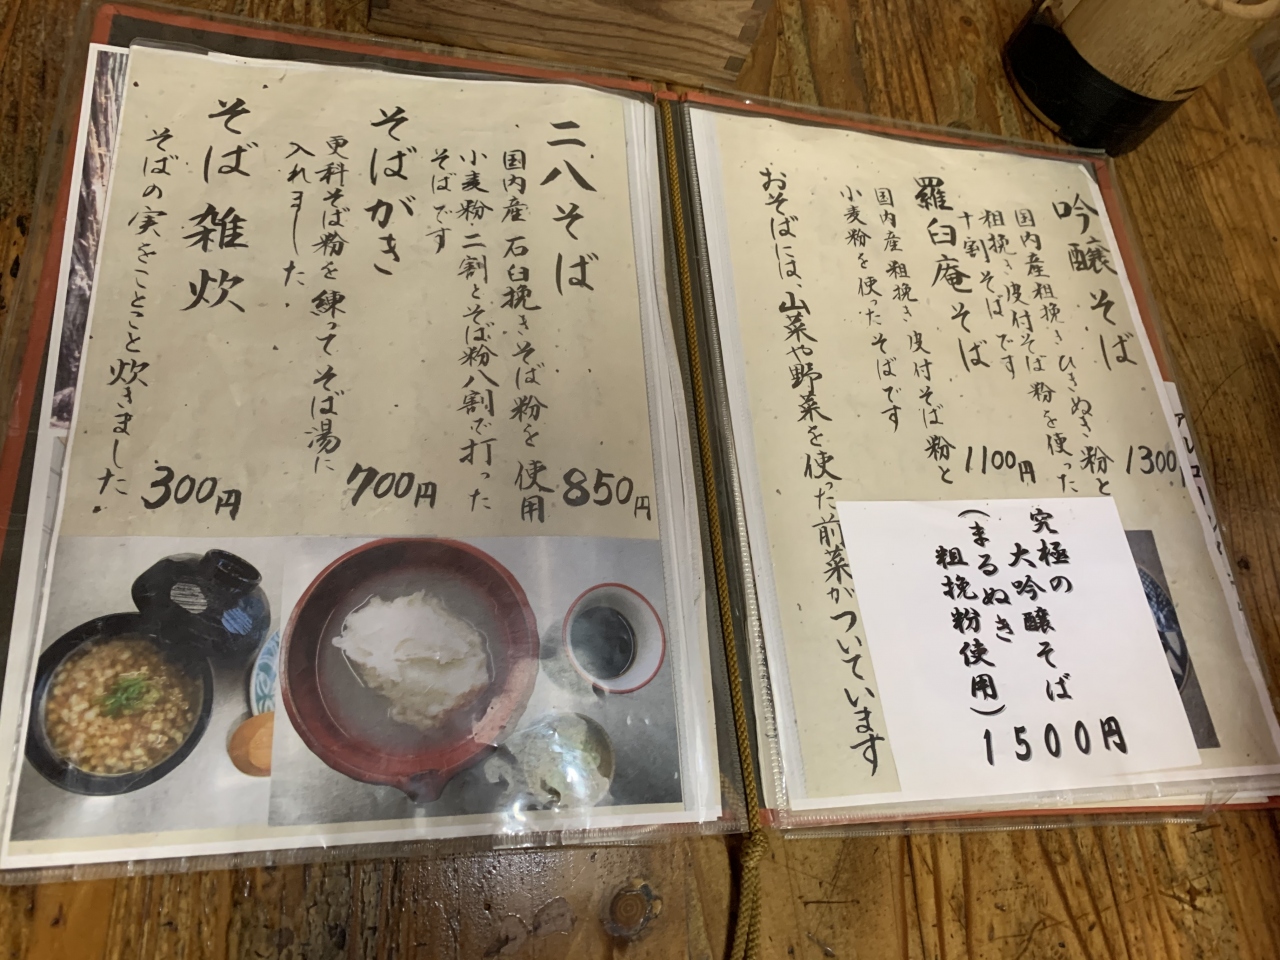 吟醸そば
国内産粗挽きひきぬき粉と
粗挽き皮付そば粉を使った
十割そばです
1300
羅臼庵そば
国内産粗挽き皮付そば粉と
小麦粉を使ったそばです
1100円
おそばには、山菜や野菜を使った前菜がついています
究極の
大吟醸そば
(まるぬき
粗挽粉使用)
1500円
二八そば
国内産石臼挽きそば粉を使用
小麦粉二割とそば粉八割で打った
そばです
850円
そばがき
更科そば粉を練ってそば湯に
入れました.
700円
そば雑炊
そばの実をことこと炊きました.
300円